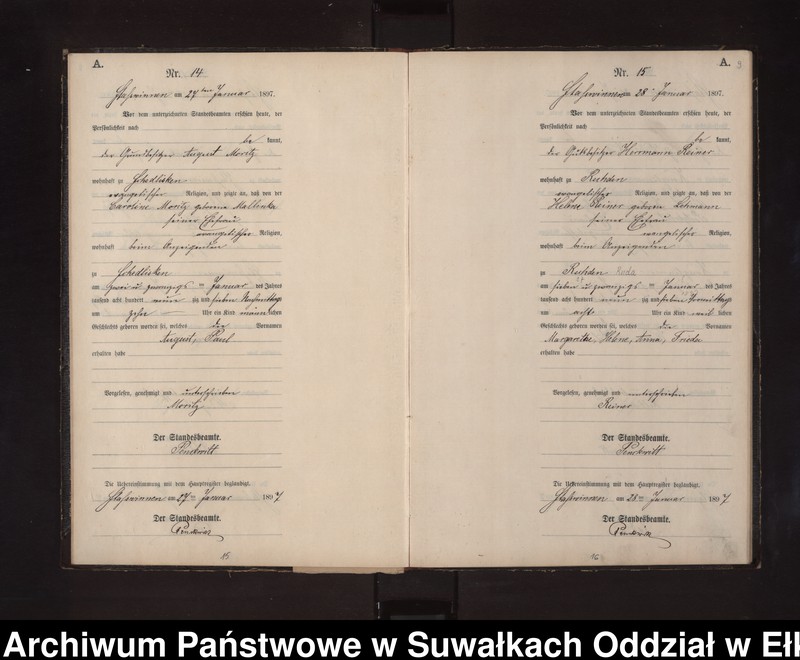 A.
Nr. 14
am 27ten Januar 1897.
Vor dem unterzeichneten Standesbeamten erschien heute, der
Persönlichkeit nach
be kannt,
der Grundbesitzer August Moritz
wohnhaft zu Schedlisken
evangelischer Religion, und zeigte an, daß von der
Caroline Moritz geborene
seiner Ehefrau
evangelischer Religion,
wohnhaft beim Anzeigenden
zu Schedlisken
am zwei u. zwanzigs ten Januar des Jahres
tausend acht hundert neun zig und sieben Nachmittags
um zehn Uhr ein Kind männ lichen
Geschlechts geboren worden sei, welches die Vornamen
August, Paul
erhalten habe
Vorgelesen, genehmigt und unterschrieben
Moritz
Der Standesbeamte.
Die Uebereinstimmung mit dem Hauptregister beglaubigt.
am 27ten Januar 1897
Der Standesbeamte.
15
A.
Nr. 15
am 28ten Januar 1897.
Vor dem unterzeichneten Standesbeamten erschien heute, der
Persönlichkeit nach
be kannt,
der Herrmann Reiner
wohnhaft zu
evangelischer Religion, und zeigte an, daß von der
Helene Reiner geboren Lehmann
seiner Ehefrau
evangelischer Religion,
wohnhaft beim Anzeigenden
zu
am sieben u. zwanzigs ten Januar des Jahres
tausend acht hundert neun zig und sieben Vormittags
um acht Uhr ein Kind weib lichen
Geschlechts geboren worden sei, welches die Vornamen
Margarethe, Helene, Anna, Frieda
erhalten habe
Vorgelesen, genehmigt und unterschrieben
Reiner
Der Standesbeamte.
Die Uebereinstimmung mit dem Hauptregister beglaubigt.
am 28ten Januar 1897
Der Standesbeamte.
16
Archiwum Państwowe w Suwałkach Oddział w Ełk